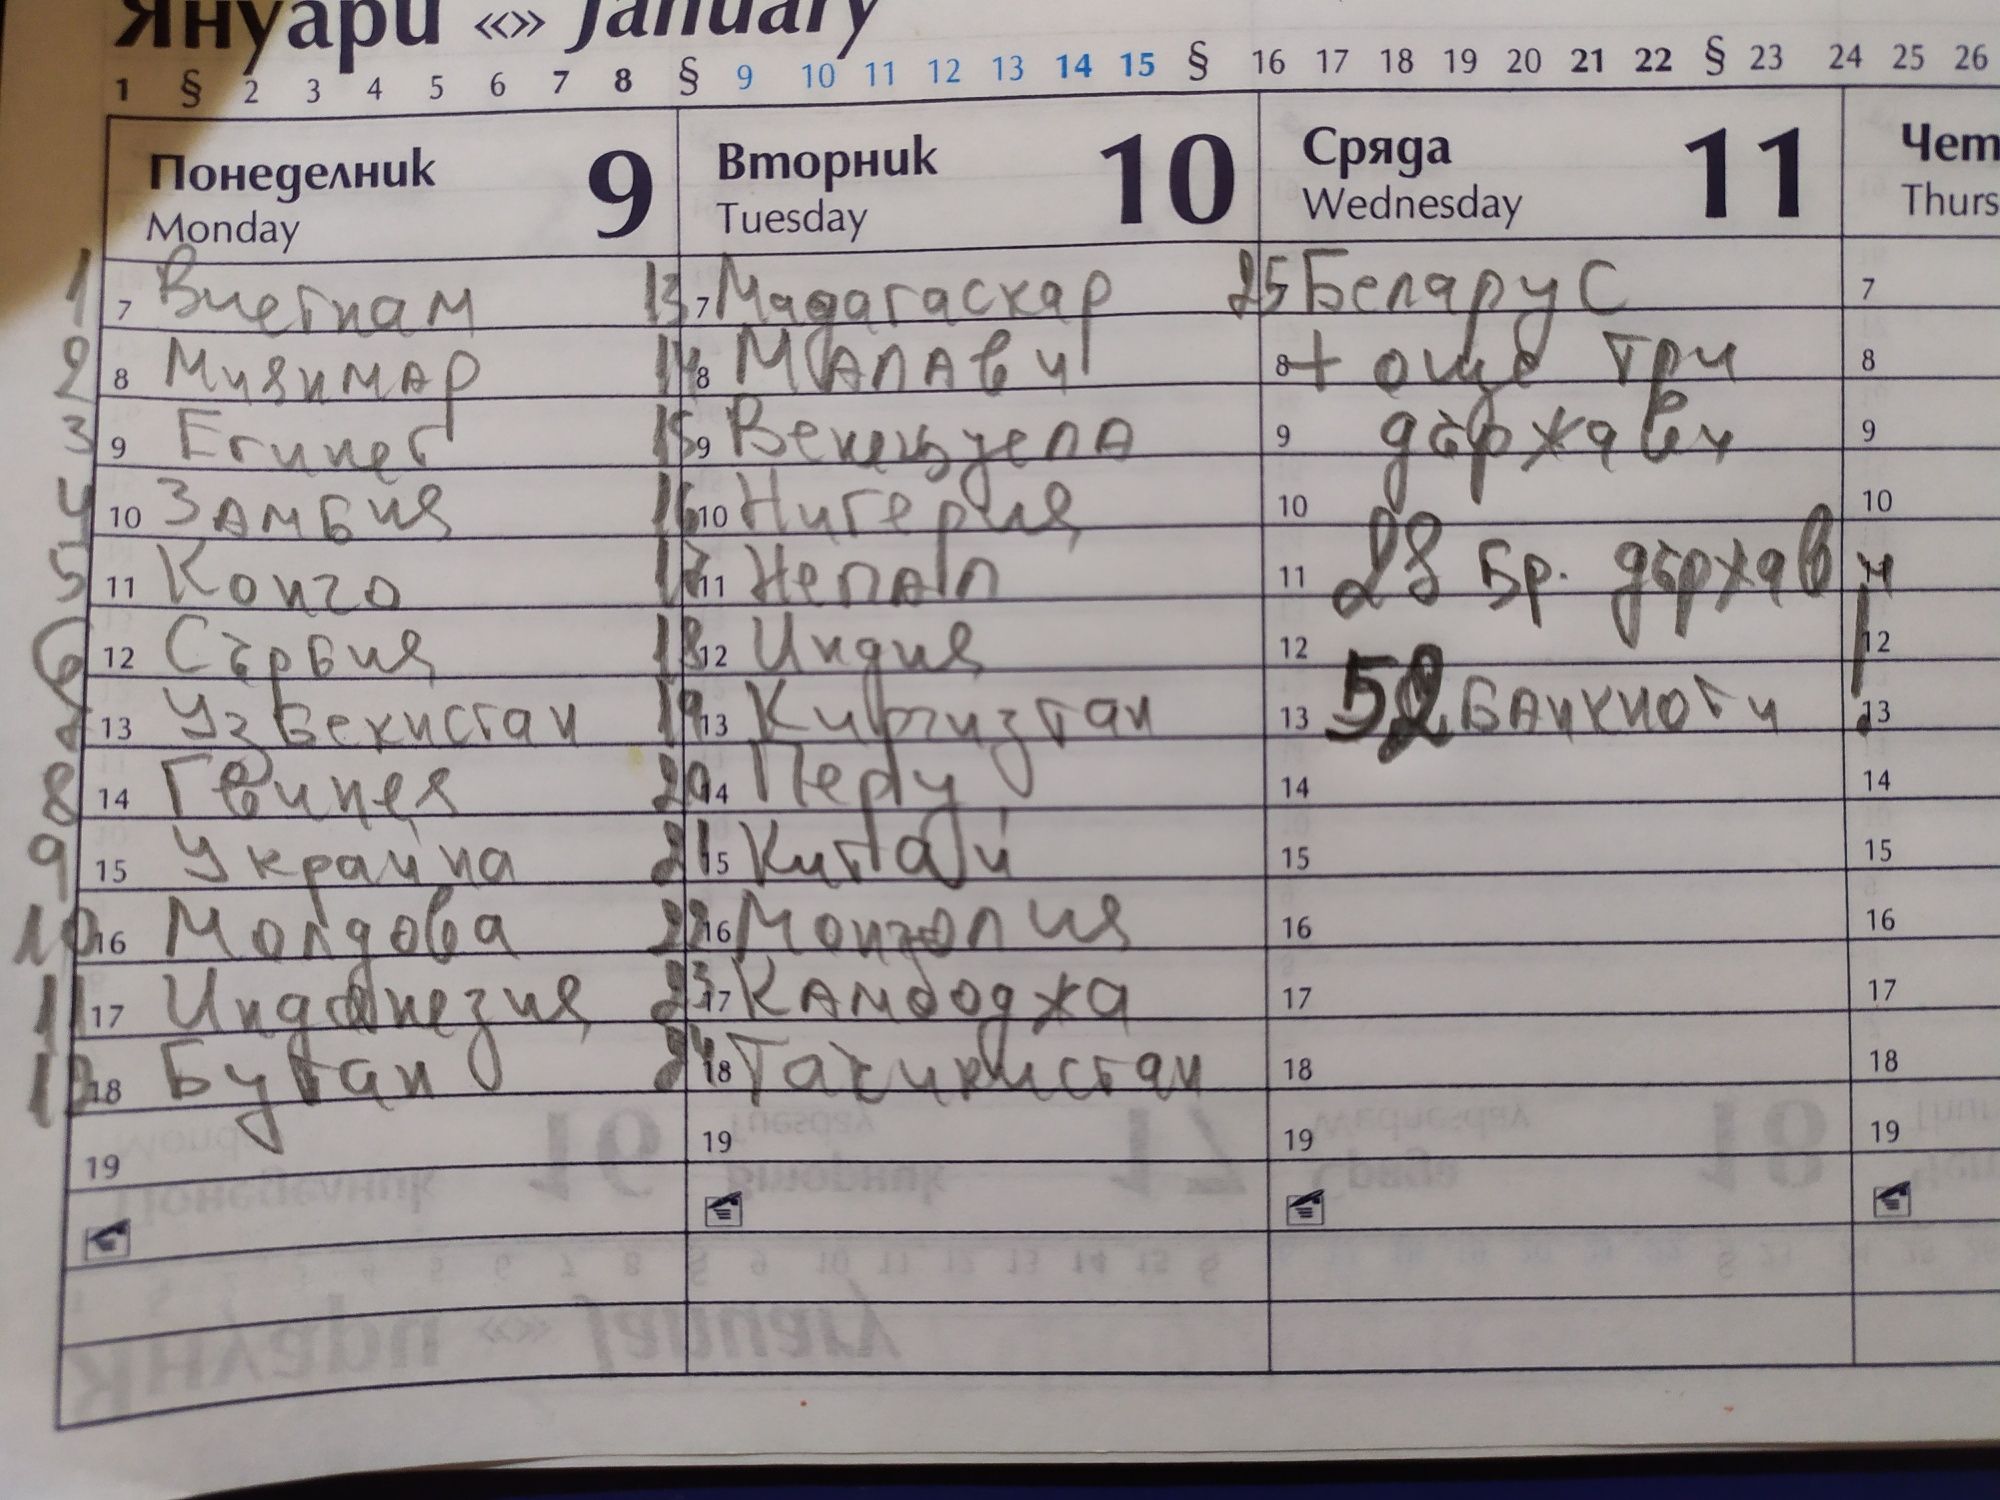 Януари «» January
1 § 2 3 4 5 6 7 8 § 9 10 11 12 13 14 15 § 16 17 18 19 20 21 22 § 23 24 25 26
Понеделник 9
Monday
1 7 Виетнам
2 8 Миянмар
3 9 Египет
4 10 Замбия
5 11 Конго
6 12 Сърбия
7 13 Узбекистан
8 14 Гвинея
9 15 Украйна
10 16 Молдова
11 17 Индонезия
12 18 Бутан
19
Вторник 10
Tuesday
13 7 Мадагаскар
14 8 Малави
15 9 Венецуела
16 10 Нигерия
17 11 Непал
18 12 Индия
19 13 Киргизтан
20 14 Перу
21 15 Китай
22 16 Монголия
23 17 Камбоджа
24 18 Тачикистан
19
Сряда 11
Wednesday
25 Беларус
8 + още три
9 държави
10
11 28 бр. държави
12
13 52 банкноти!
14
15
16
17
18
19
Чет
Thurs
7
8
9
10
12
13
14
15
16
17
18
19